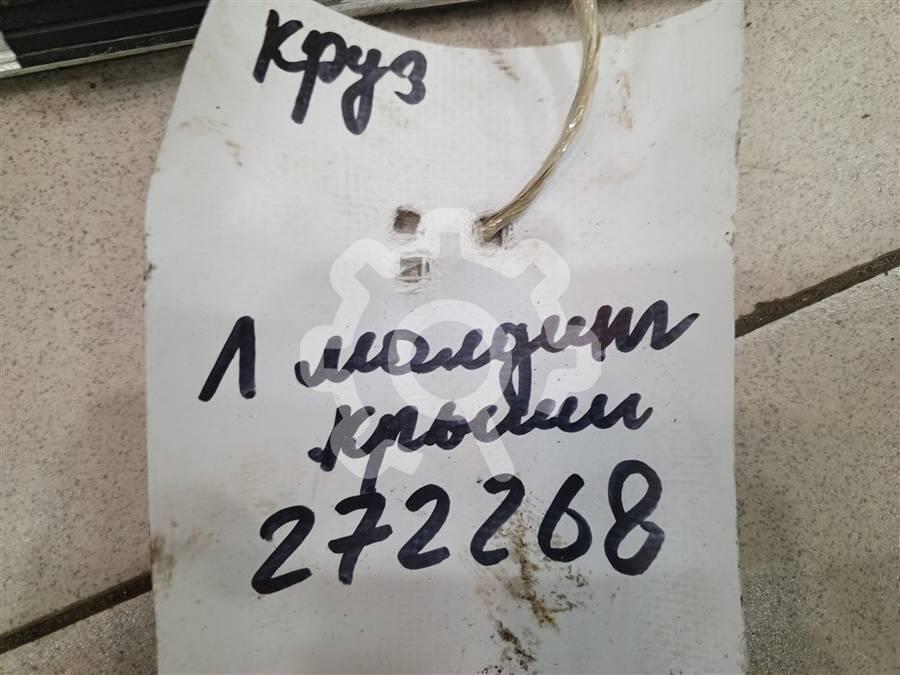 Круз
Л молдинг
крыши
272268